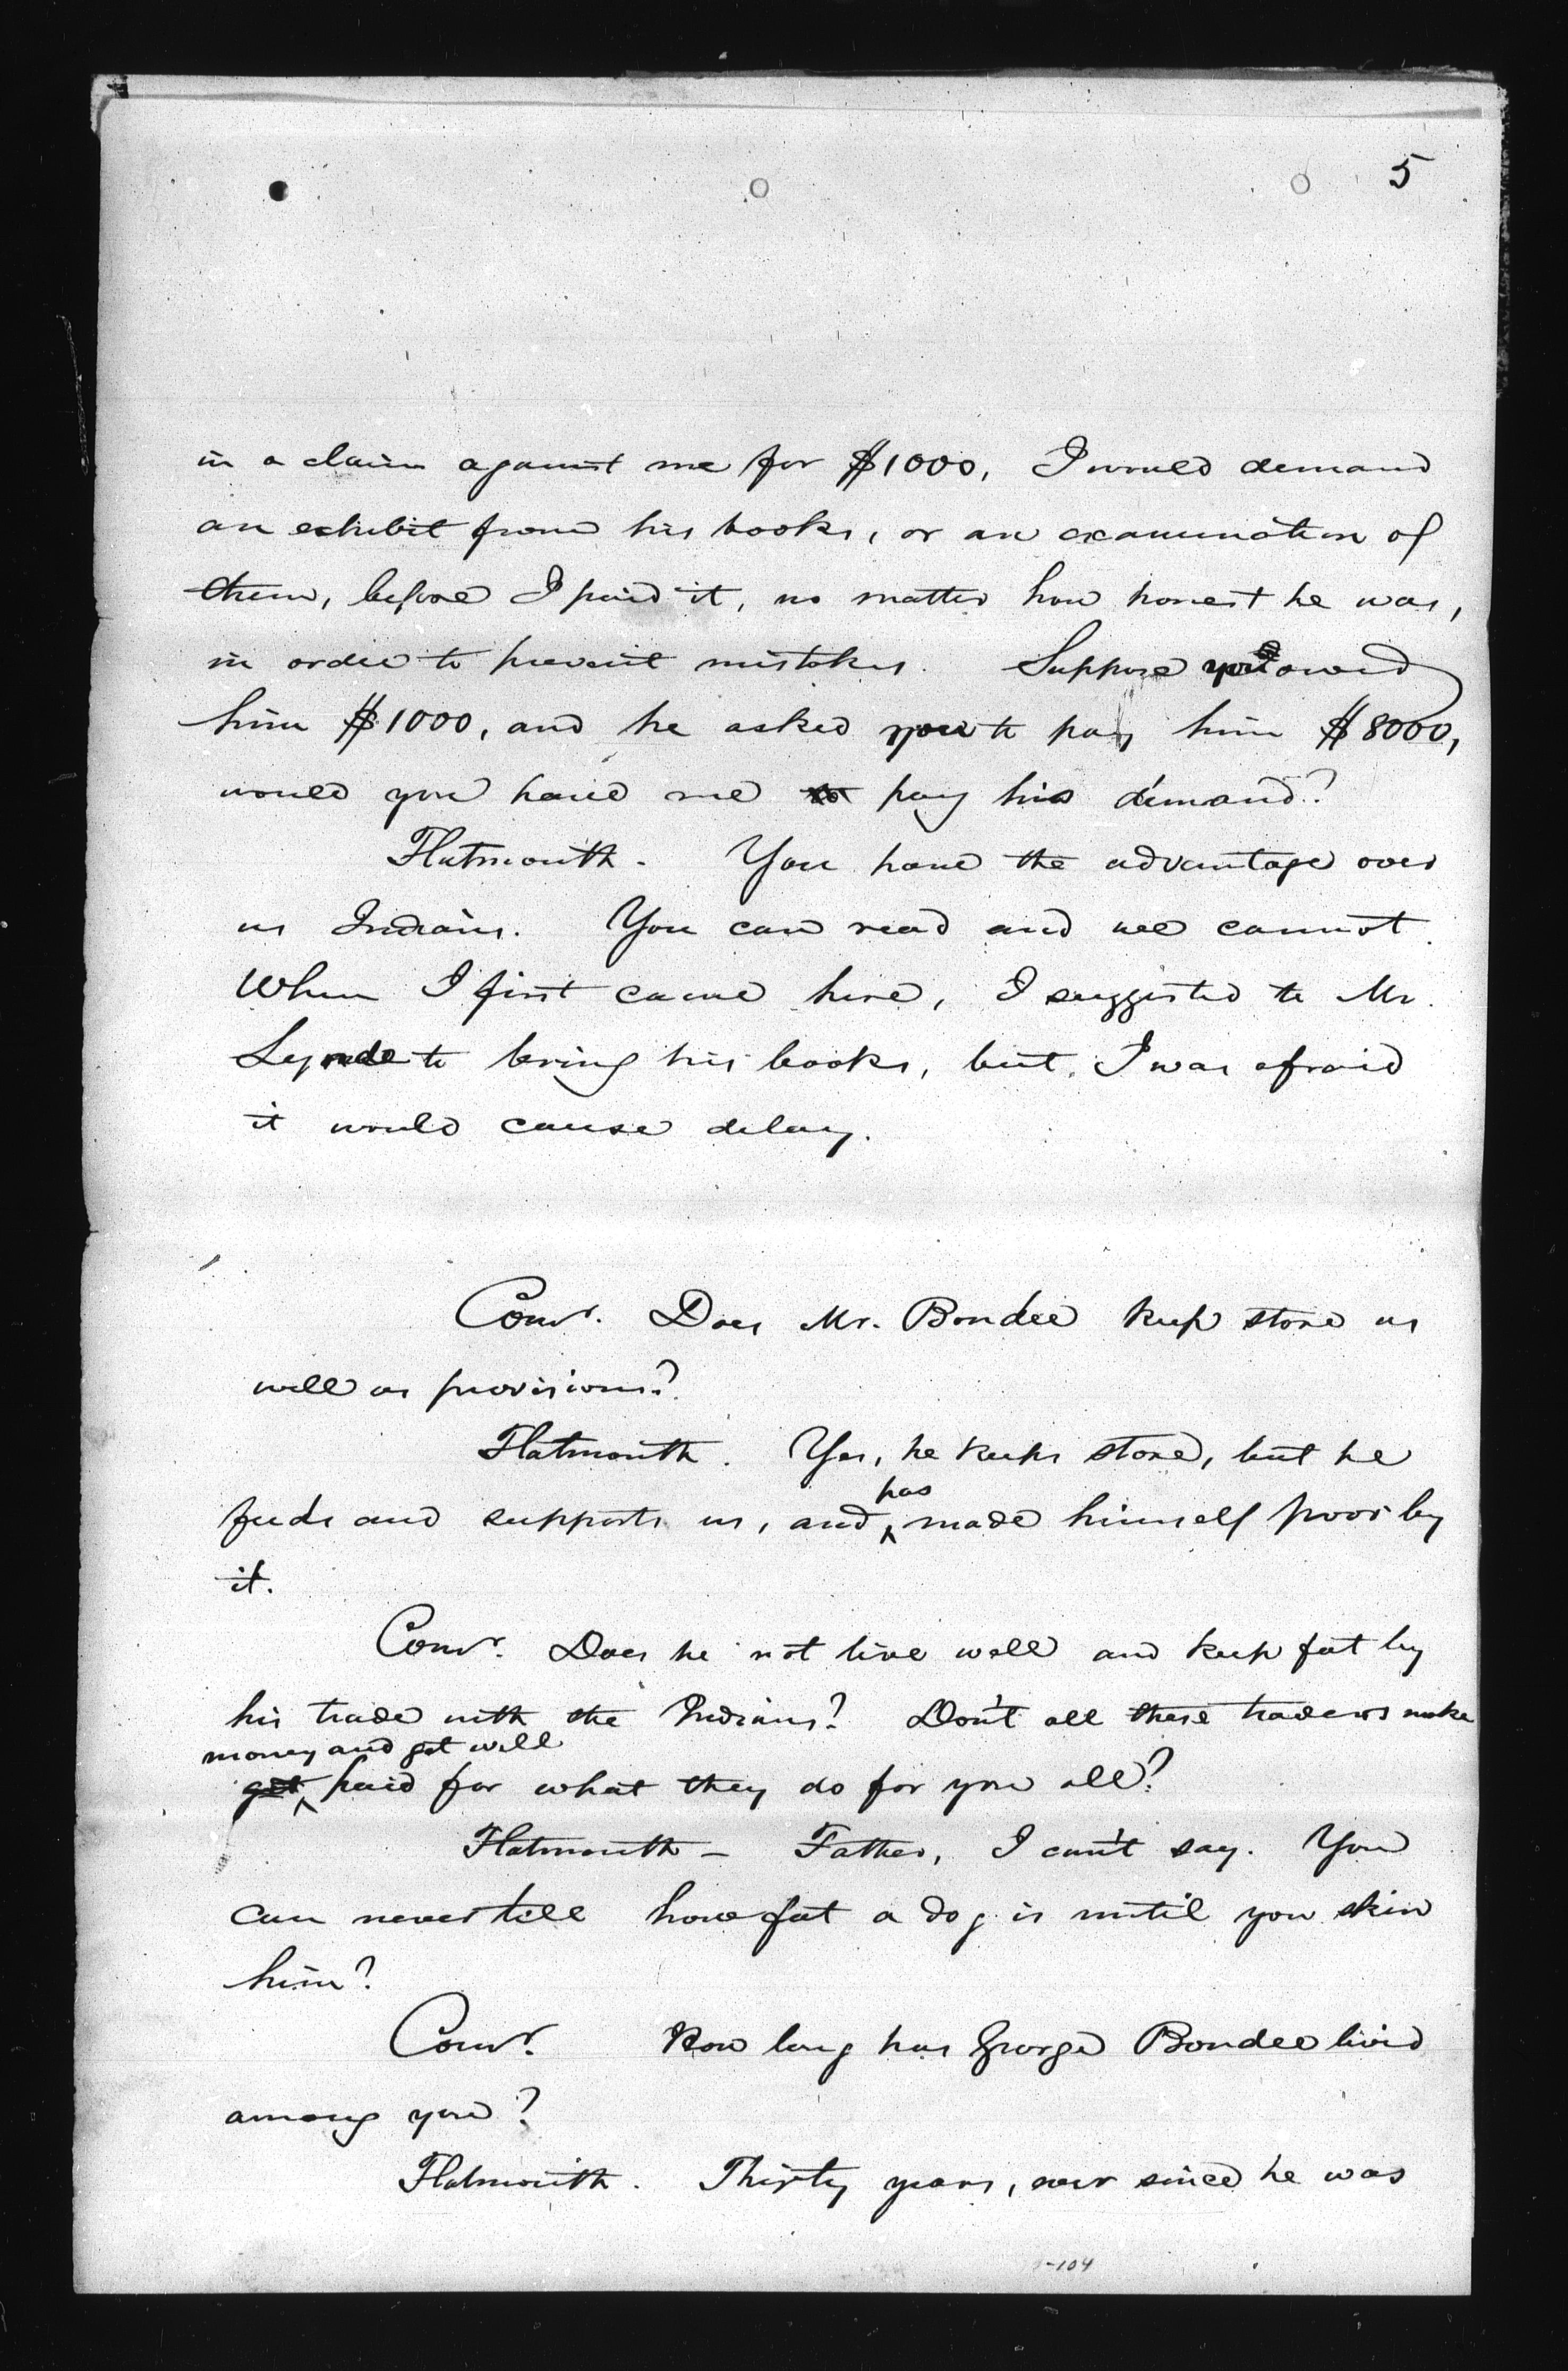 5
in a claim against me for $1000, I would demand
an exhibit from his books, or an examination of
them, before I paid it, no matter how honest he was,
in order to prevent mistakes. Suppose you owed
him $1000, and he asked you to pay him $8000,
would you have me pay his demand?
Flatmouth. You have the advantage over
us Indians. You can read and we cannot.
When I first came here, I suggested to Mr.
Lynde to bring his books, but I was afraid
it would cause delay.
Comr. Does Mr. Bondee keep store as
well as provisions?
Flatmouth. Yes, he keeps store, but he
feeds and supports us, and has made himself poor by
it.
Comr. Does he not live well and keep fat by
his trade with the Indians? Don't all these traders make
money and get well
get paid for what they do for you all?
Flatmouth - Father, I can't say. You
can never tell how fat a dog is until you skin
him?
Comr. How long has George Bondee lived
among you?
Flatmouth. Thirty years, ever since he was
-104